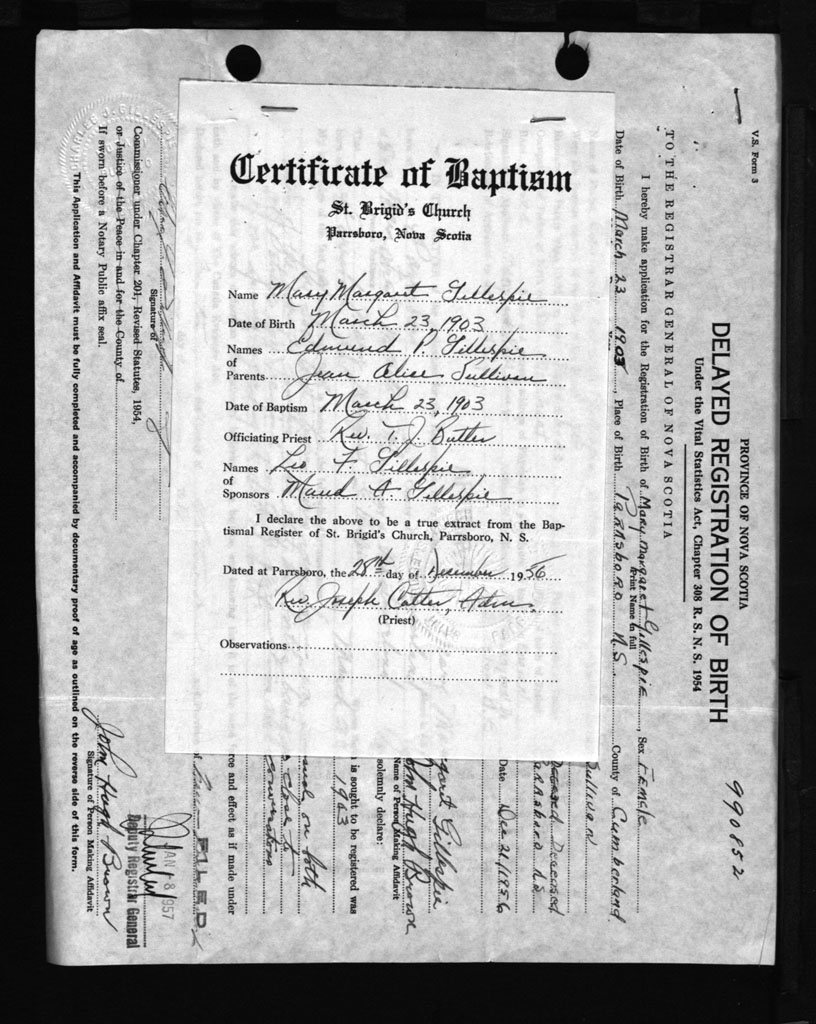 Certificate of Baptism
St. Brigid's Church
Parrsboro, Nova Scotia
Name Mary Margaret Gillespie
Date of Birth March 23, 1903
Names of Parents Edmund P. Gillespie
Jean Alice Sullivan
Date of Baptism March 23, 1903
Officiating Priest Rev. T. J. Butler
Names of Sponsors Leo F. Gillespie
Maud A. Gillespie
I declare the above to be a true extract from the Bap-
tismal Register of St. Brigid's Church, Parrsboro, N. S.
Dated at Parrsboro, the 28th day of December 1956
Rev. Joseph Adm.
(Priest)
Observations
V.S. Form 3
990852
PROVINCE OF NOVA SCOTIA
DELAYED REGISTRATION OF BIRTH
Under the Vital Statistics Act, Chapter 308 R. S. N. S. 1954
TO THE REGISTRAR GENERAL OF NOVA SCOTIA
I hereby make application for the Registration of Birth of Mary Margaret Gillespie, Sex Female
Print Name in full
Date of Birth March 23 1903, Place of Birth Parrsboro N.S. County of Cumberland
Sullivan
Deceased
Parrsboro NS
Date Dec 21/1956
Margaret Gillespie
John Hugh Brown
Name of Person Making Affidavit
solemnly declare:
is sought to be registered was
1903
on both
close to
force and effect as if made under
FILED
JAN 18 1957
Deputy Registrar General
Signature of
Commissioner under Chapter 201, Revised Statutes, 1954,
or Justice of the Peace in and for the County of
If sworn before a Notary Public affix seal.
John Hugh Brown
Signature of Person Making Affidavit
This Application and Affidavit must be fully completed and accompanied by documentary proof of age as outlined on the reverse side of this form.